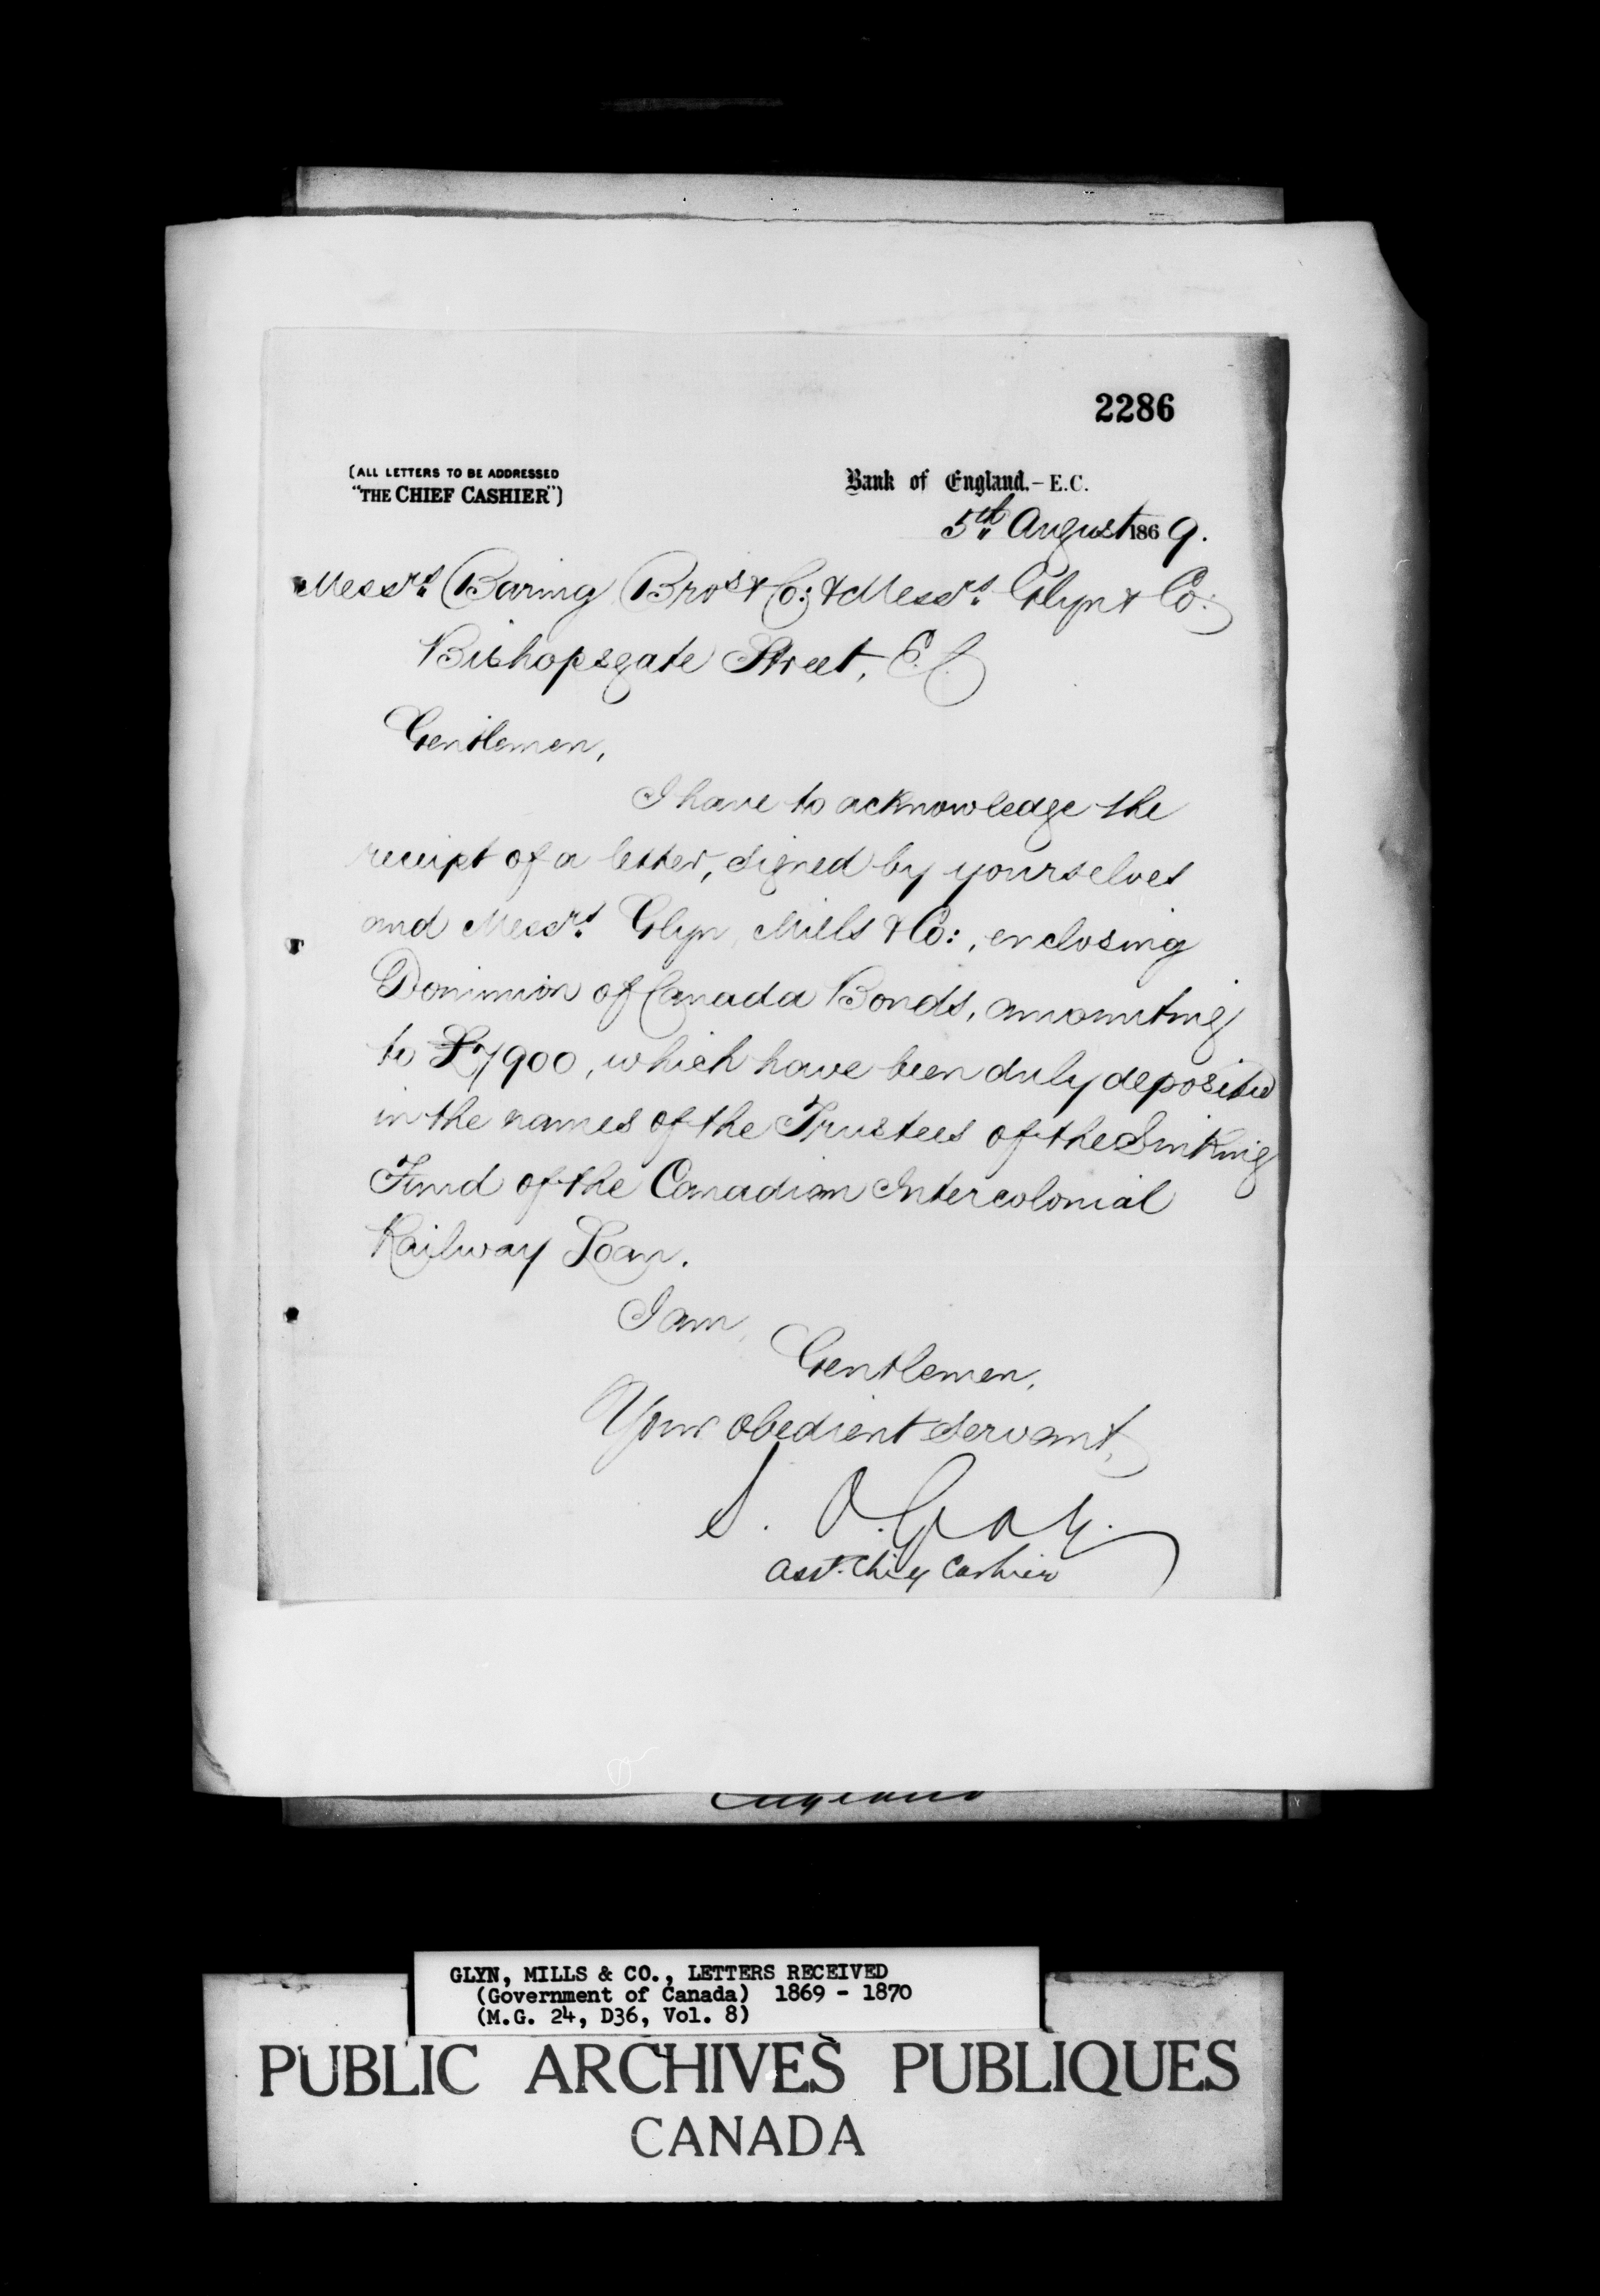 2286
(ALL LETTERS TO BE ADDRESSED
"THE CHIEF CASHIER")
Bank of England.- E.C.
5th August 1869.
Messrs Baring Bros & Co: & Messrs Glyn & Co:
Bishopsgate Street, E.C.
Gentlemen,
I have to acknowledge the
receipt of a letter, signed by yourselves
and Messrs Glyn, Mills & Co:, enclosing
Dominion of Canada Bonds, amounting
to £7900, which have been duly deposited
in the names of the Trustees of the Sinking
Fund of the Canadian Intercolonial
Railway Loan.
I am,
Gentlemen,
Your obedient servant,
S. O. Gray.
Asst. Chief Cashier
England
GLYN, MILLS & CO., LETTERS RECEIVED
(Government of Canada) 1869 - 1870
(M.G. 24, D36, Vol. 8)
PUBLIC ARCHIVES PUBLIQUES
CANADA